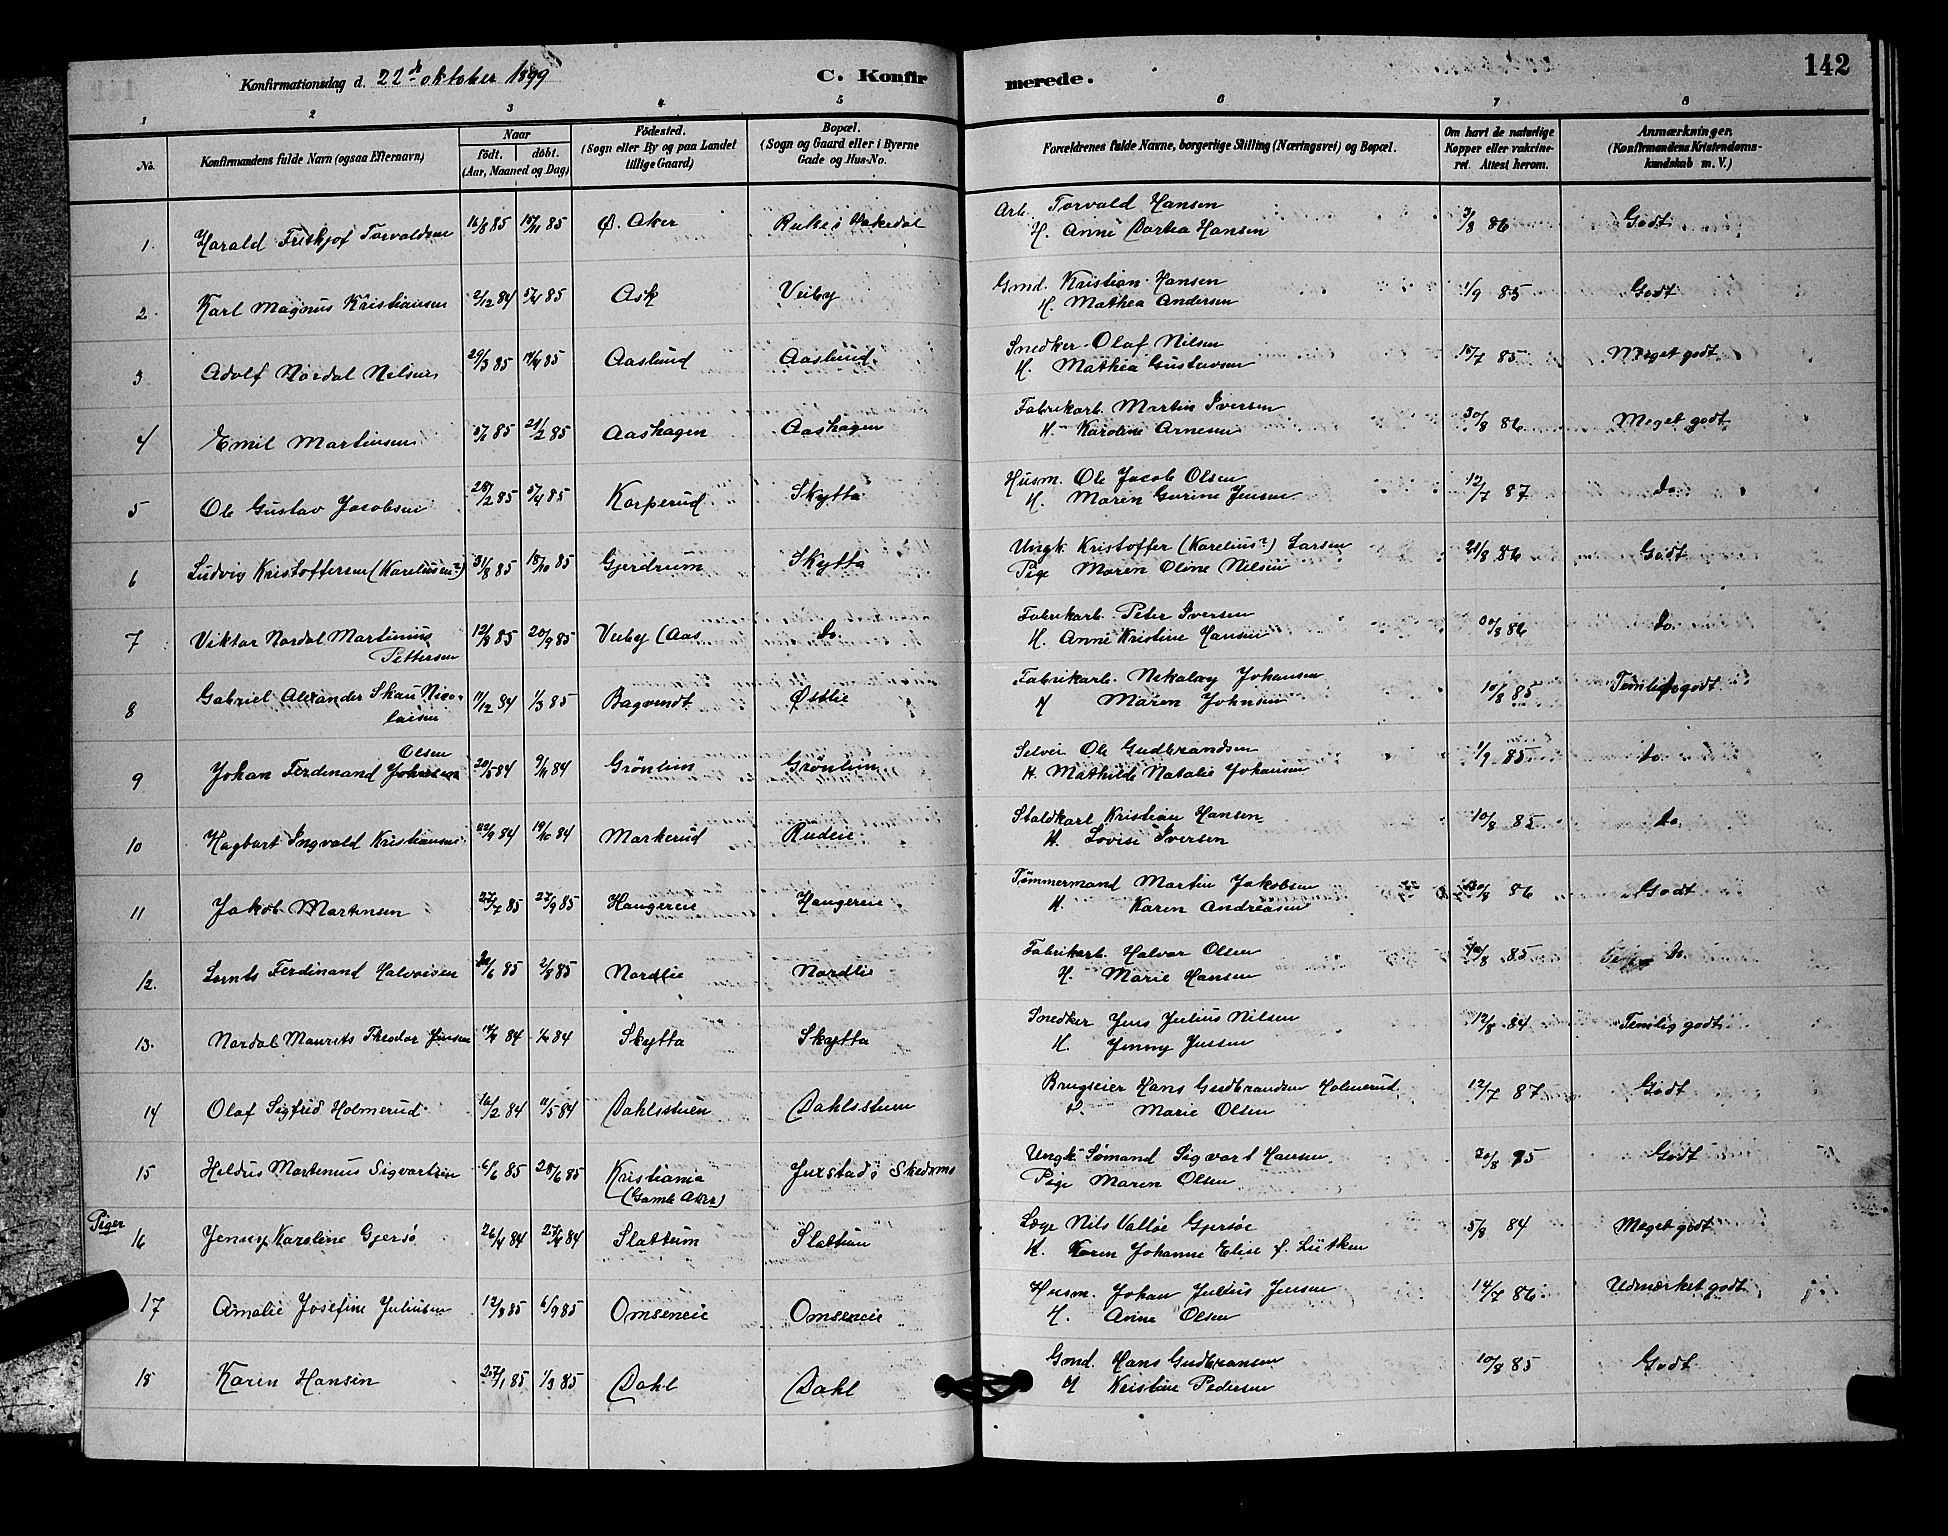 Konfirmationsdag d. 22de oktober 1899
C. Konfir
merede.
142
1
2
3
4
5
6
7
8
No.
Konfirmandens fulde Navn (ogsaa Efternavn)
Naar
født.
døbt.
(Aar, Maaned og Dag)
Födested.
(Sogn eller By og paa Landet
tillige Gaard)
Bopæl.
(Sogn og Gaard eller i Byerne
Gade og Hus-No.
Forældrenes fulde Navne, borgerlige Stilling (Næringsvei) og Bopæl.
Om havt de naturlige
Kopper eller vakcine-
ret. Attest herom.
Anmærkninger.
(Konfirmandens Kristendoms-
kundskab m. V.)
1. Harald Fritkjof Torvaldsen 16/8 85 15/11 85 Ø. Aker Hakedal Arb. Torvald Hansen 3/8 86 Godt
H. Anne Dortea Hansen
2. Karl Magnus Kristiansen 2/12 84 5/4 85 Ask Veiby Gmd. Kristian Hansen 1/9 85 Godt
H. Mathea Andersen
3 Adolf Nordal Nilsen 29/3 85 19/4 85 Aaslund Aaslund Snedker Olaf Nilsen 15/7 85 Meget godt
H. Mathea Gustavsen
4 Emil Martinsen 5/1 85 21/2 85 Aashagen Aashagen Fabrikarb. Martin Iversen 30/8 86 Meget godt
H. Karoline Arnesen
5 Ole Gustav Jacobsen 28/2 85 5/4 85 Korperud Skytta Husm. Ole Jacob Olsen 12/7 87 do.
H. Maren Gurine Jensen
6 Ludvig Kristoffersen (Kareliusen?) 31/8 85 18/10 85 Gjerdrum Skytta Ungk. Kristoffer (Karelius?) Larsen 21/8 86 Godt
Pige Maren Oline Nilsen
7 Viktor Nordal Martinius 12/8 85 20/9 85 Veiby (Aas do. Fabrikarb. Peter Iversen 30/8 86 do.
Pettersen H. Anne Kristine Hansen
8 Gabriel Alexander Skau Nico- 11/12 84 1/3 85 Bagvendt Østlie Fabrikarb. Nikolay Johansen 10/8 85 Temlig godt
laisen H Maren Johnsen
Olsen
9 Johan Ferdinand Johnsen 20/5 84 9/11 84 Grönlun Grönlun Selvei Ole Gudbrandsen 1/9 85 do.
H. Mathilde Natalie Johansen
10 Hagbart Ingvald Kristiansen 22/9 84 19/10 84 Markerud Rudeie Staldkarl Kristian Hansen 10/8 85 do.
H. Lovise Iversen
11 Jakob Martinsen 27/7 85 27/9 85 Haugereie Haugereie Tömmermand Martin Jakobsen 30/8 86 Godt
H. Karen Andreasen
12. Lornts Ferdinand Halvorsen 30/6 85 2/8 85 Nordlie Nordlie Fabrikarb. Halvor Olsen 10/8 85 do.
H. Marie Hansen
13. Nordal Maurits Theodor Jensen Skytta Skytta Snedker Jens Julius Nilsen 12/8 84 Temlig godt
H. Jenny Jensen
14 Olaf Sigfrid Holmerud 16/2 84 11/5 84 Dahlsstuen Dahlsstuen Brugseier Hans Gudbrandsen Holmerud 12/7 87 Godt
H. Marie Olsen
15 Heldus Martinius Sigvartsen 6/6 85 28/6 85 Kristiania Jurstad i Skedsmo Ungk. Sömand Sigvart Hansen 20/8 95 Godt
(Gamle Aker) Pige Maren Olsen
Piger
16 Jenny Karoline Gjersö 26/4 84 Slattum Slattum Læge Nils Valløe Gjersøe 5/8 84 Meget godt
H. Karen Johanne Elise f. Lütken
17 Amalie Josefine Juliusen 12/8 85 6/9 85 Omseneie Omseneie Husm. Johan Julius Jensen 14/7 86 Udmærket godt
H. Anne Olsen
18 Karen Hansen 27/1 85 1/3 85 Dahl Dahl Gmd. Hans Gudbransen 10/8 85 Godt
H Kristine Pedersen